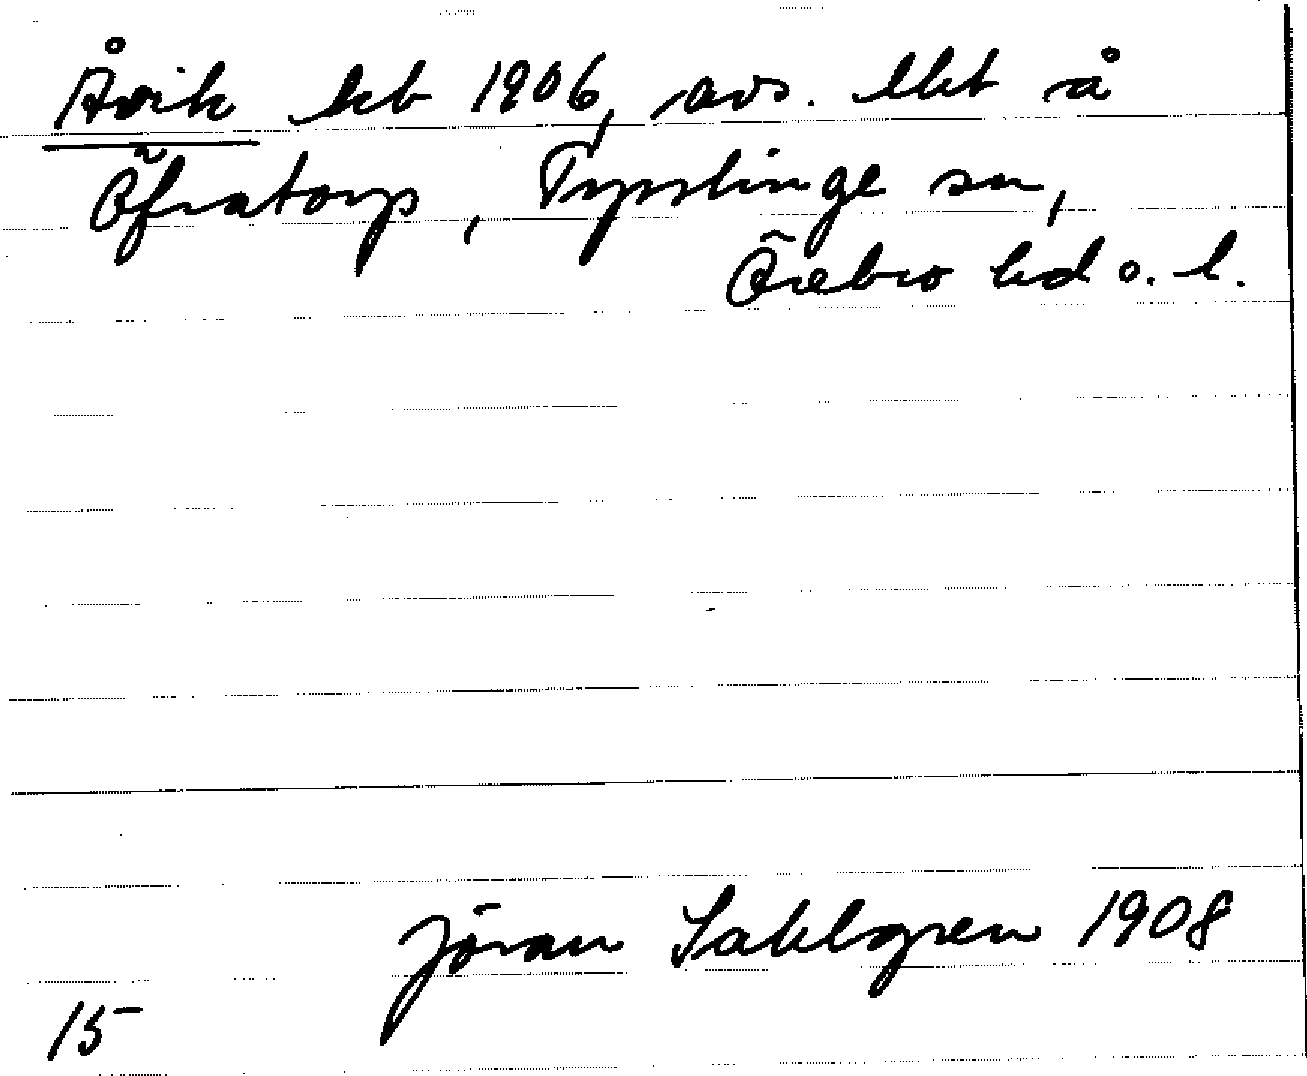 Åvik lht 1906, avs. llht å
Öfratorp, Tysslinge sn,
Örebro hd o. l.
Jöran Sahlgren 1908
15